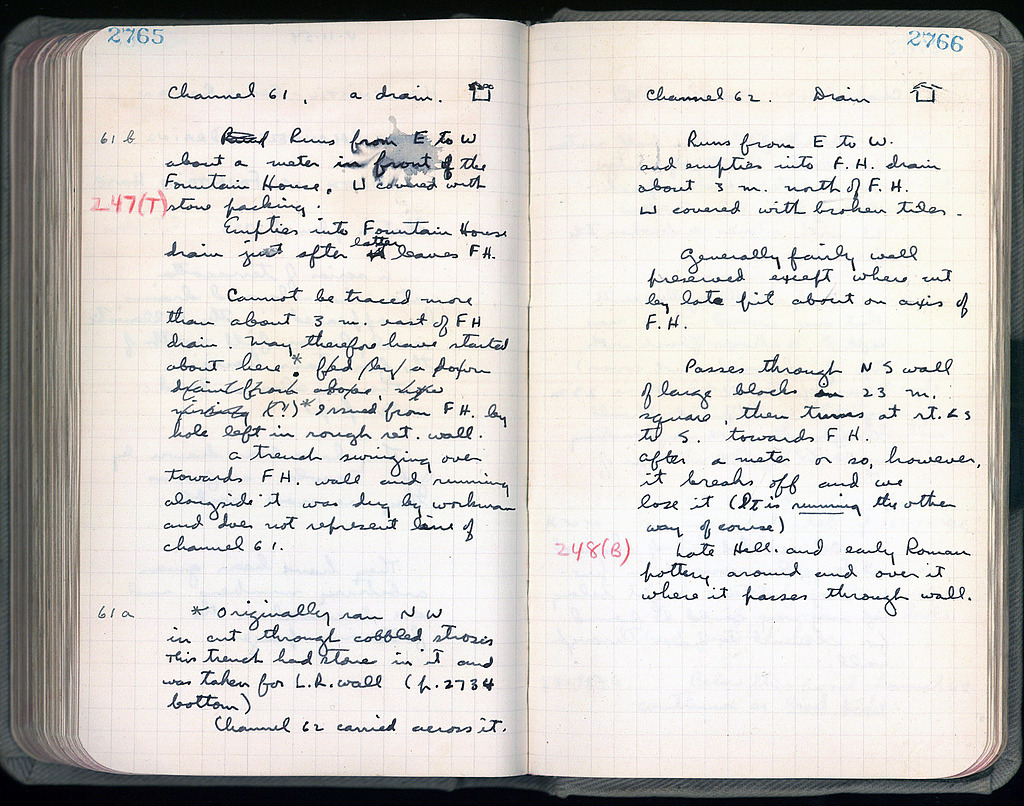 2765
Channel 61, a drain.
61 b
Runs from E to W
about a meter in front of the
Fountain House. W covered with
247(T)
stone packing.
Empties into Fountain House
drain just after latter leaves F.H.
Cannot be traced more
than about 3 m. east of FH
drain. May therefore have started
about here *. fed by a down
drain from above,
(?) * Issued from F.H. by
hole left in rough ret. wall.
a trench swinging over
towards F.H. wall and running
alongside it was dug by workman
and does not represent line of
channel 61.
61 a
* Originally ran N W
in cut through cobbled strosis
This trench had stone in it and
was taken for L.R. wall (p. 2734
bottom)
Channel 62 carried across it.
2766
Channel 62. Drain
Runs from E to W.
and empties into F.H. drain
about 3 m. north of F.H.
W covered with broken tiles.
Generally fairly well
preserved except where cut
by late pit about on axis of
F.H.
Passes through N S wall
of large blocks in 23 m.
square, then turns at rt. ∠s
to S. towards F H.
after a meter or so, however,
it breaks off and we
lose it (It is running the other
way of course)
248(B)
Late Hell. and early Roman
pottery around and over it
where it passes through wall.